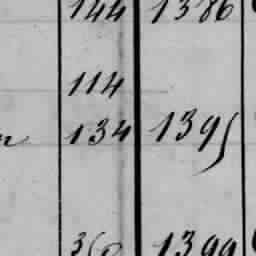 144 1386
114
134 1395
360 1399